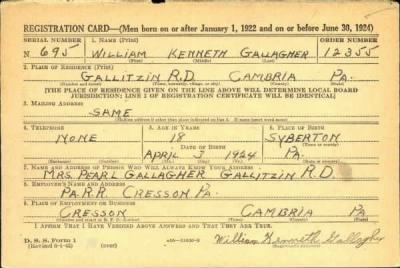 REGISTRATION CARD—(Men born on or after January 1, 1922 and on or before June 30, 1924)
SERIAL NUMBER 1. NAME (Print) ORDER NUMBER
N 695 WILLIAM KENNETH GALLAGHER 12355
(First) (Middle) (Last)
2. PLACE OF RESIDENCE (Print)
GALLITZIN R.D. CAMBRIA PA.
(Number and street) (Town, township, village, or city) (County) (State)
[THE PLACE OF RESIDENCE GIVEN ON THE LINE ABOVE WILL DETERMINE LOCAL BOARD
JURISDICTION; LINE 2 OF REGISTRATION CERTIFICATE WILL BE IDENTICAL]
3. MAILING ADDRESS
SAME
[Mailing address if other than place indicated on line 2. If same insert word same]
4. TELEPHONE 5. AGE IN YEARS 6. PLACE OF BIRTH
NONE 18 SYBERTON
DATE OF BIRTH (Town or county)
APRIL 3 1924 PA.
(Exchange) (Number) (Mo.) (Day) (Yr.) (State or country)
7. NAME AND ADDRESS OF PERSON WHO WILL ALWAYS KNOW YOUR ADDRESS
MRS. PEARL GALLAGHER GALLITZIN R.D.
8. EMPLOYER'S NAME AND ADDRESS
PA.R.R. CRESSON PA.
9. PLACE OF EMPLOYMENT OR BUSINESS
CRESSON CAMBRIA PA
(Number and street or R. F. D. number) (Town) (County) (State)
I AFFIRM THAT I HAVE VERIFIED ABOVE ANSWERS AND THAT THEY ARE TRUE.
D. S. S. Form 1
(Revised 6-9-41) (over) William Kenneth Gallagher